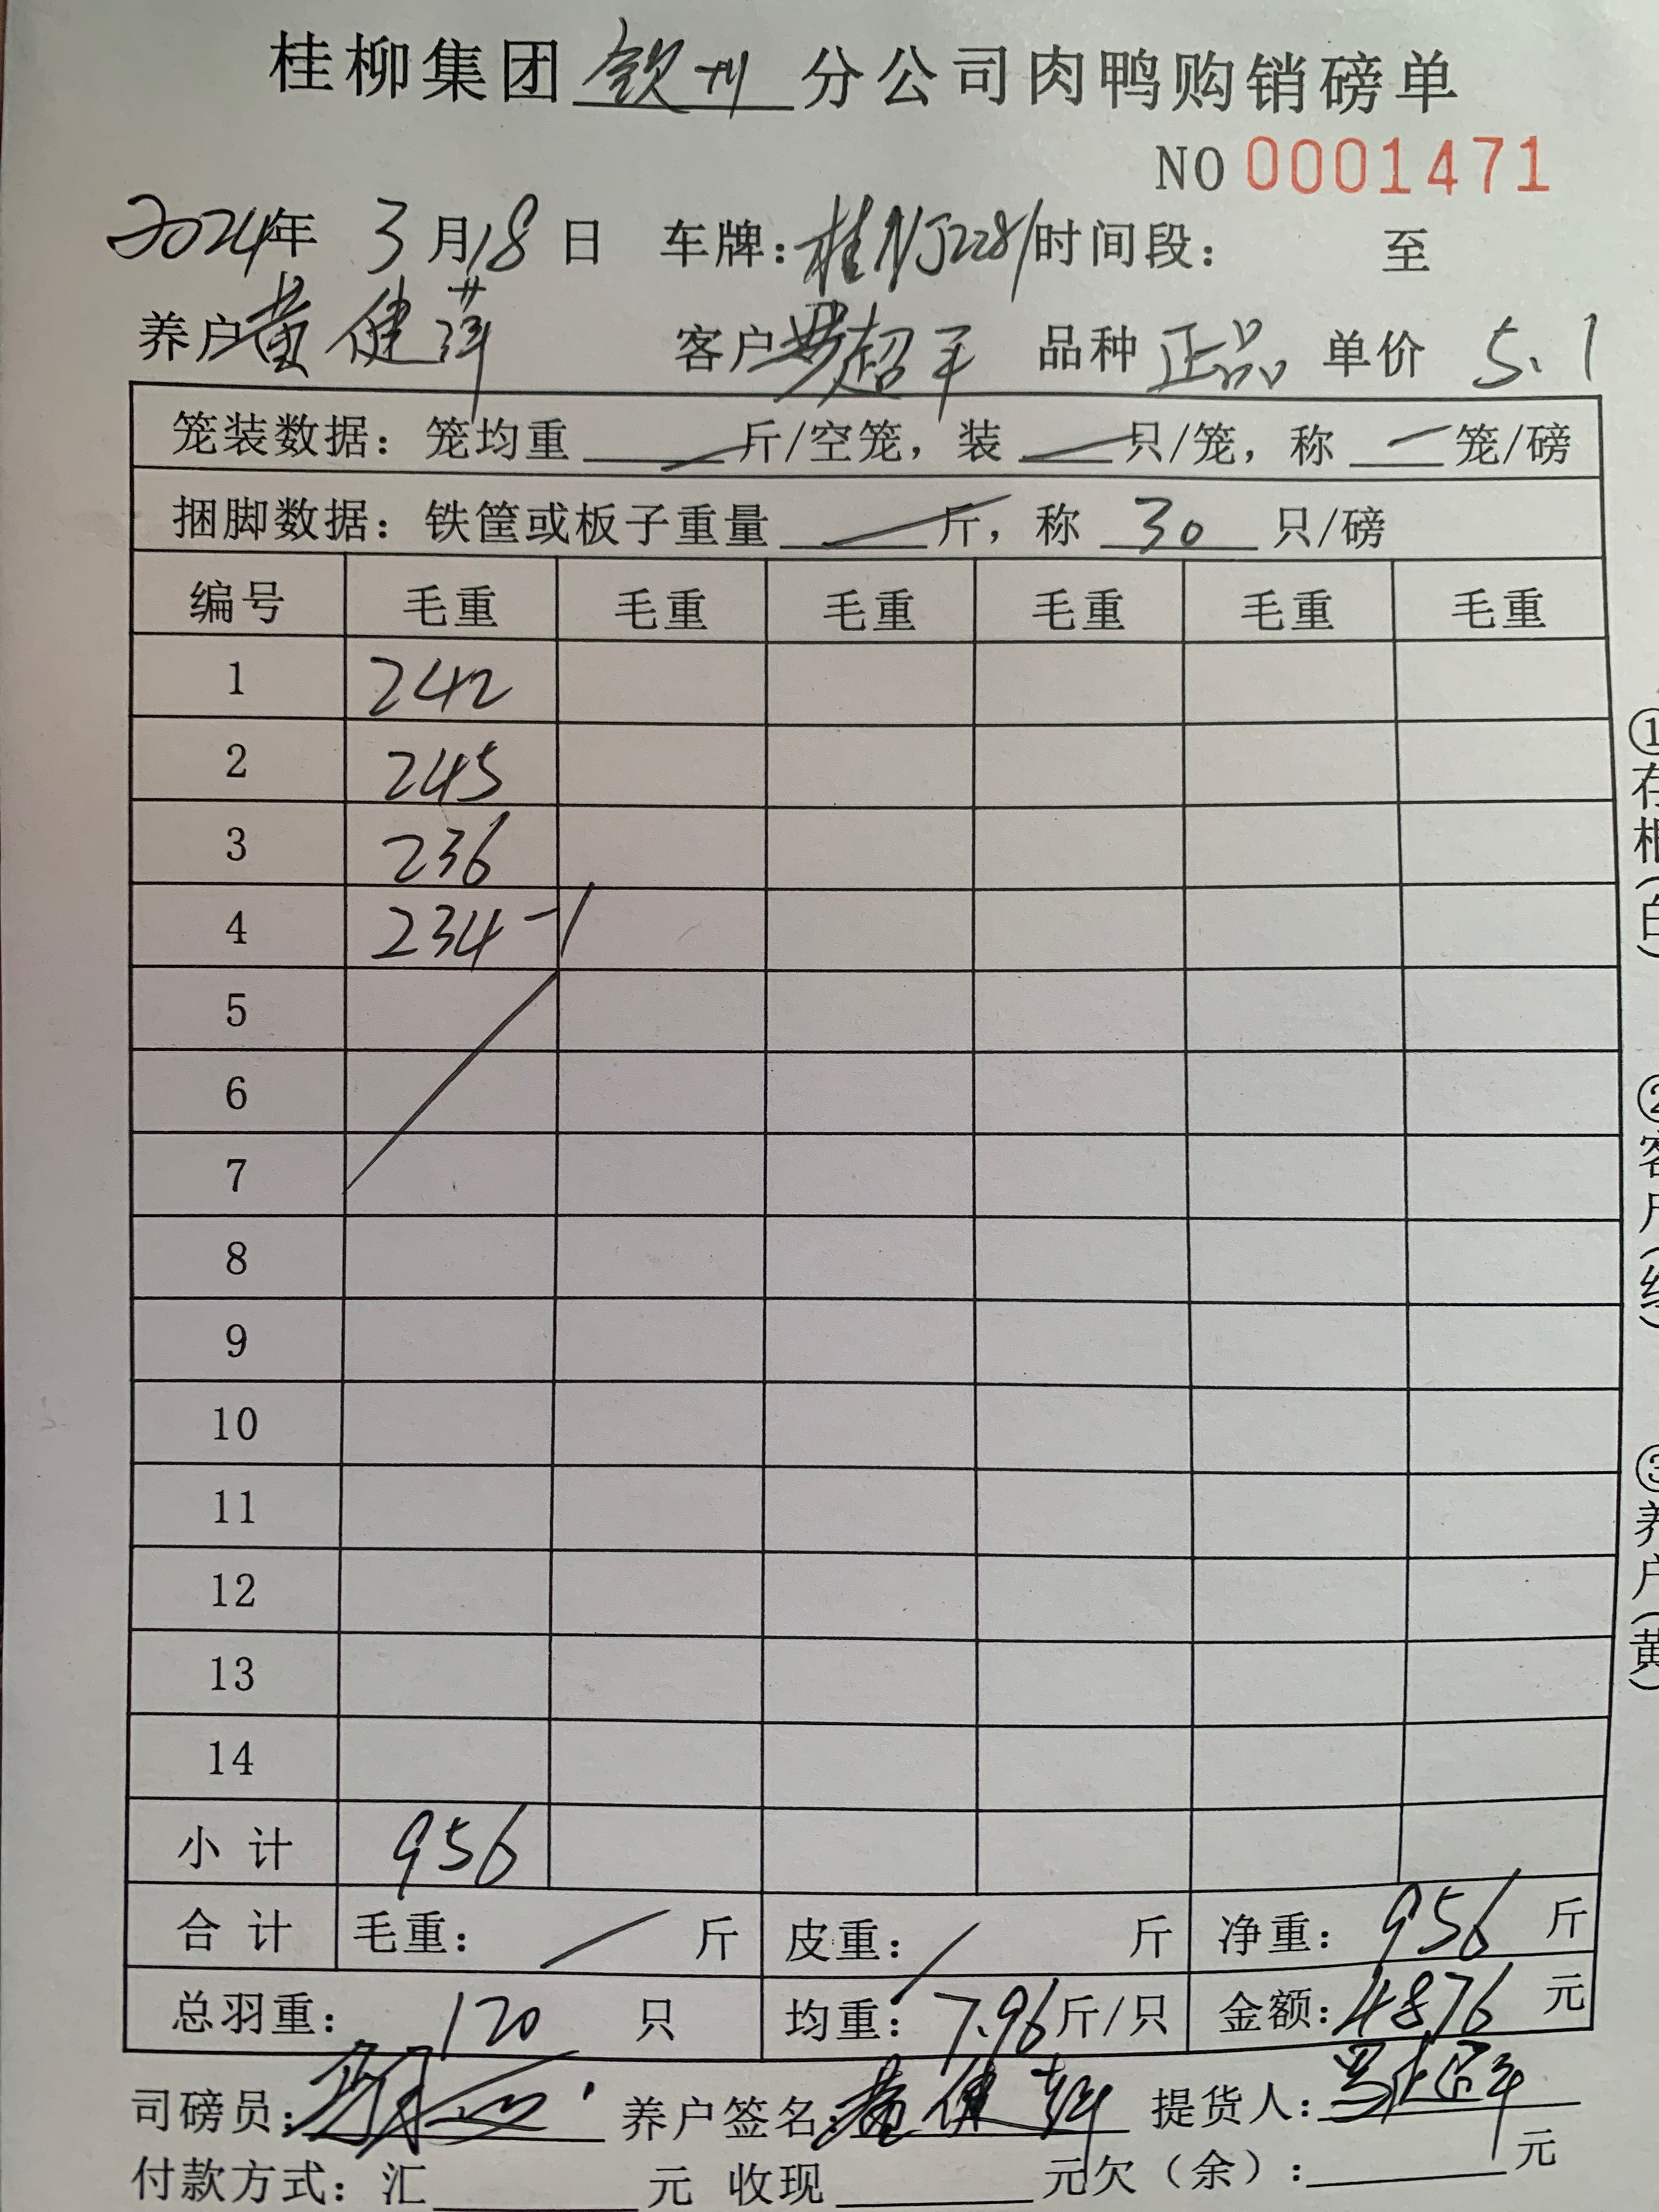 桂柳集团 钦州 分公司肉鸭购销磅单
NO 0001471
2024年 3月18日 车牌:桂NJ2281 时间段: 至
养户 黄健萍 客户 超平 品种 正品 单价 5.1
笼装数据:笼均重 斤/空笼,装 只/笼,称 笼/磅
捆脚数据:铁筐或板子重量 斤,称 30 只/磅
编号 毛重 毛重 毛重 毛重 毛重 毛重
1 242
2 245
3 236
4 234
5
6
7
8
9
10
11
12
13
14
小 计 956
合 计 毛重: 斤 皮重: 斤 净重: 956 斤
总羽重: 120 只 均重: 7.96 斤/只 金额: 4876 元
司磅员: 养户签名: 黄健 提货人: 超平
付款方式:汇 元 收现 元欠(余): 元
①存根(白)
②客户(红)
③养户(黄)